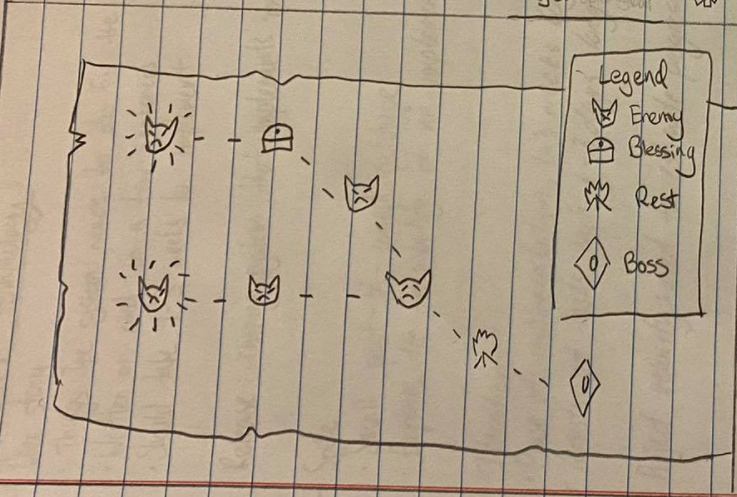 Legend
Enemy
Blessing
Rest
Boss